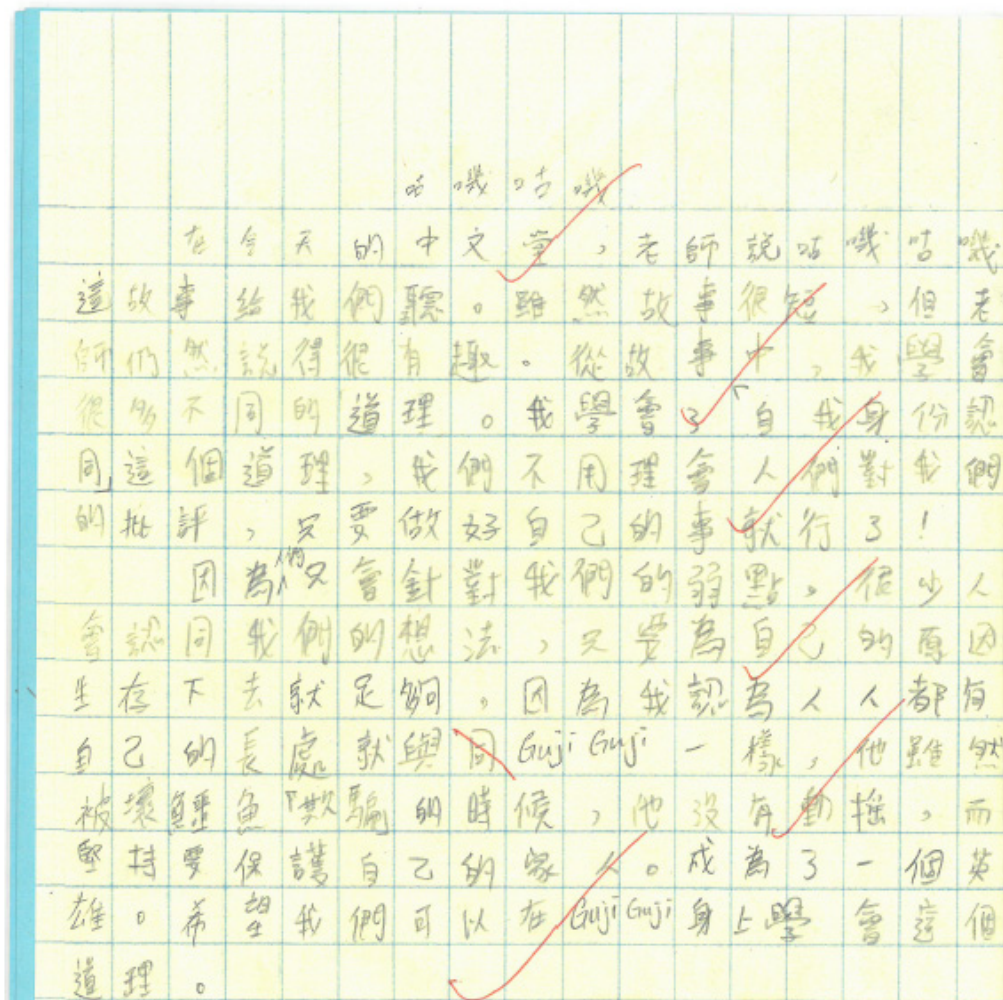 咕嘰咕嘰
在今天的中文堂，老師說咕嘰咕嘰
這故事給我們聽。雖然故事很短，但老
師仍然說得很有趣。從故事中，我學會
很多不同的道理。我學會了「自我身份認
同」這個道理，我們不用理會人們對我們
的批評，只要做好自己的事就行了！
因為人們只會針對我們的弱點，很少人
會認同我們的想法，只要為自己的原因
生存下去就足夠，因為我認為人人都有
自己的長處就與同Guji Guji一樣，他雖然
被壞鱷魚「欺騙」的時候，他沒有動搖，而
堅持要保護自己的家人。成為了一個英
雄。希望我們可以在Guji Guji身上學會這個
道理。